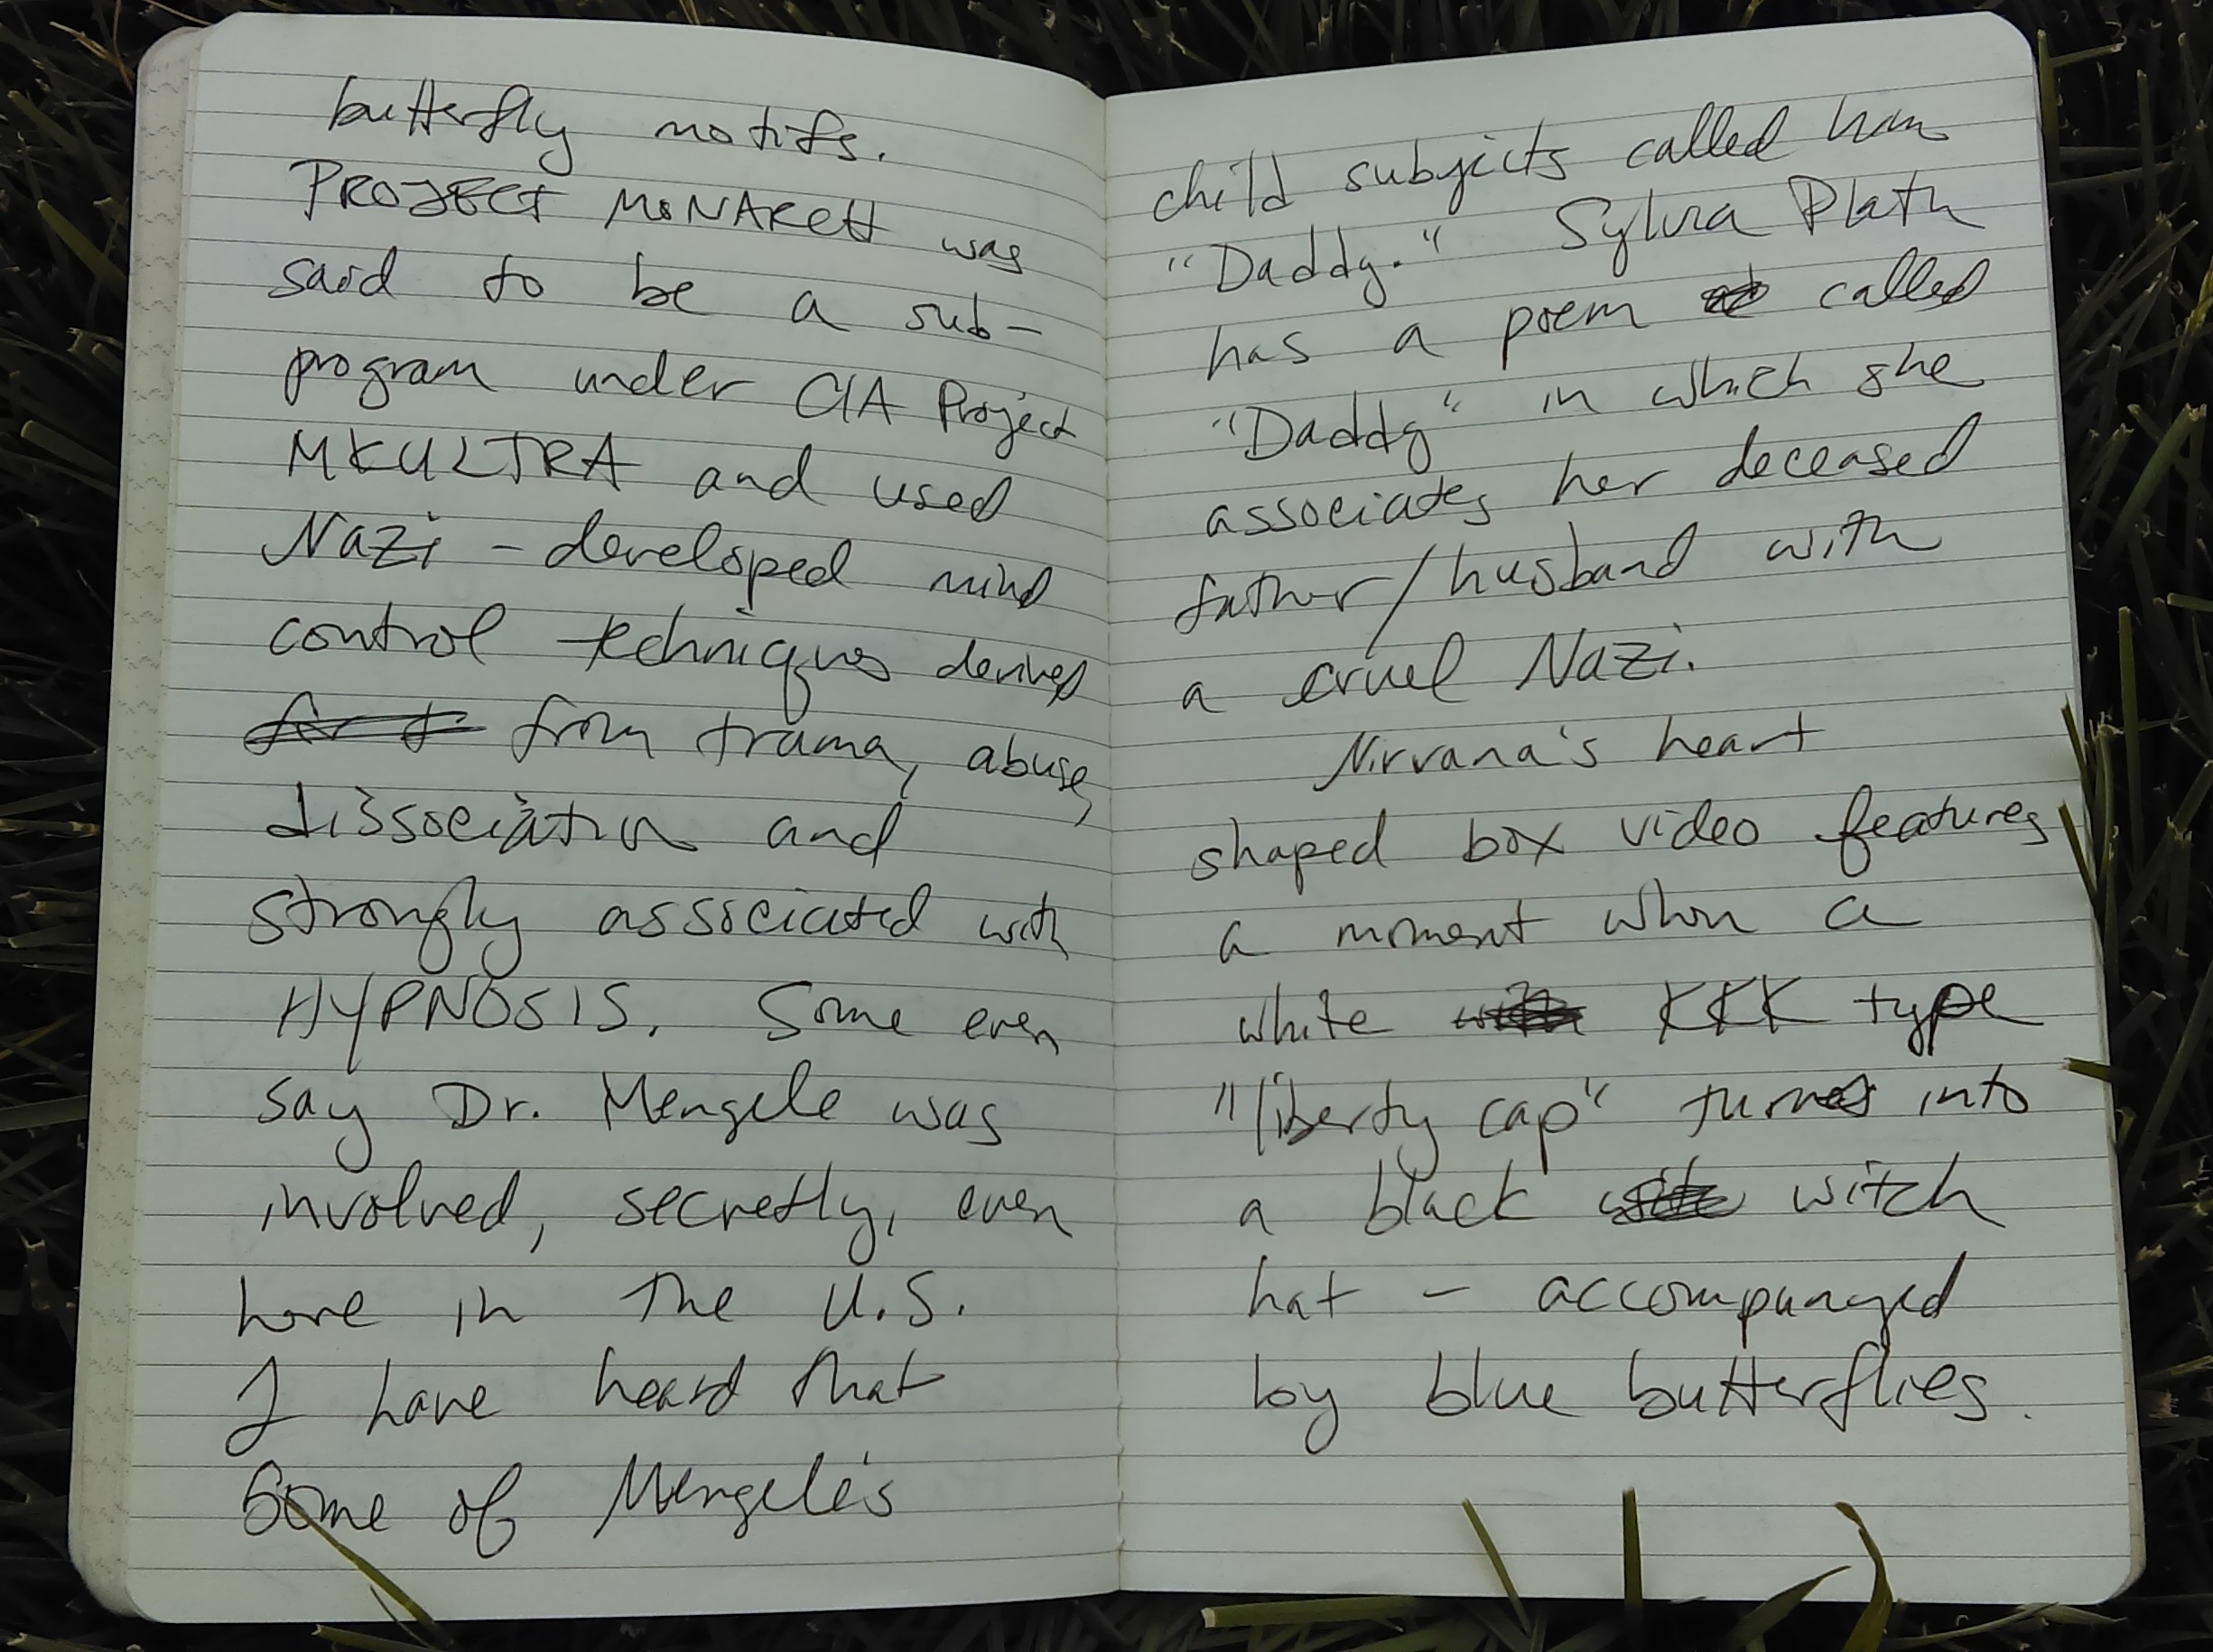 butterfly motifs.
PROJECT MONARCH was
said to be a sub-
program under CIA Project
MKULTRA and used
Nazi - developed mind
control techniques derived
from trama, abuse,
dissociation and
strongly associated with
HYPNOSIS. Some even
say Dr. Mengele was
involved, secretly, even
here in the U.S.
I have heard that
Some of Mengele's
child subjects called him
"Daddy." Sylvia Plath
has a poem called
"Daddy" in which she
associates her deceased
father/husband with
a cruel Nazi.
Nirvana's heart
shaped box video features
a moment when a
white KKK type
"liberty cap" turns into
a black witch
hat - accompanyed
by blue butterflies.